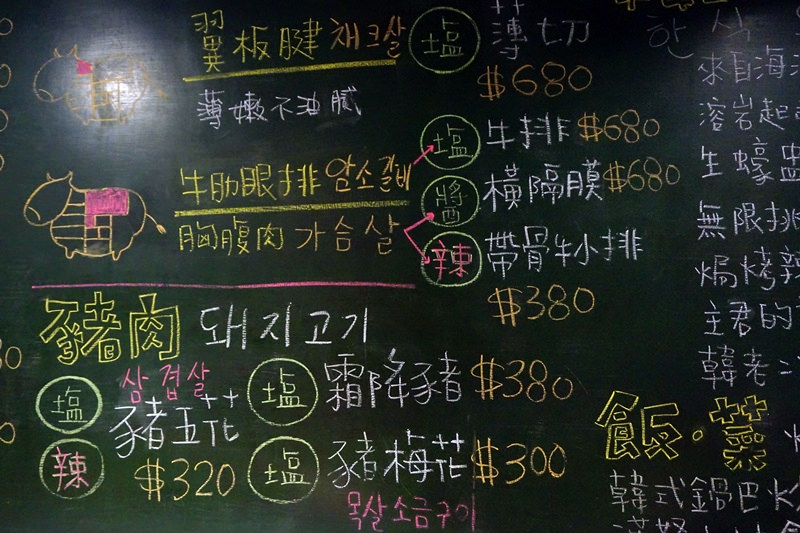 翼板腱 채크살
薄嫩不油膩
牛肋眼排 암소갈비
胸腹肉 가슴살
塩 薄切
$680
塩 牛排 $680
醬 橫隔膜 $680
辣 帶骨牛小排
$380
豬肉 돼지고기
삼겹살
塩 豬五花
辣 $320
塩 霜降豬 $380
塩 豬梅花 $300
목살소금구이
한식
來自海
溶岩起
生蠔
無限挑
焗烤辣
主君的
韓老二
飯·葉
韓式鍋巴